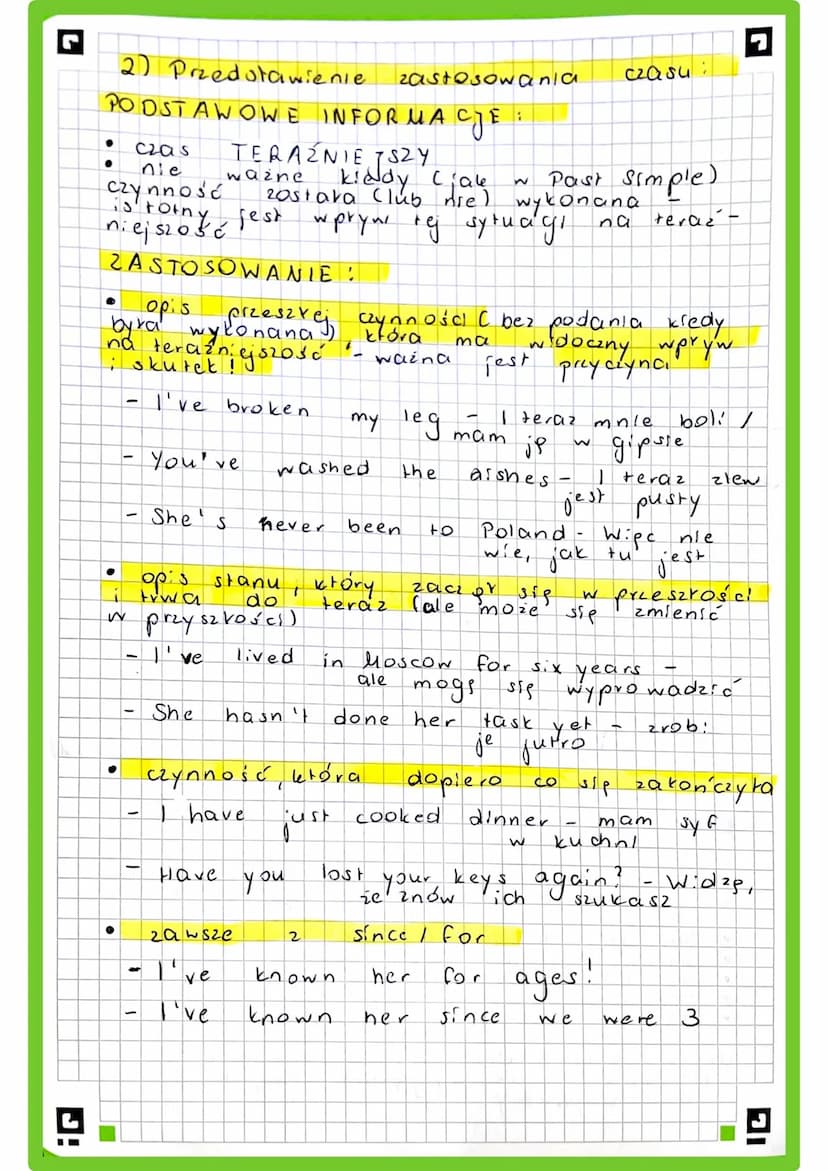 2) Przedstawienie zastosowania czasu:
PODSTAWOWE INFORMACJE:
• czas TERAŹNIEJSZY
• nie ważne kiedy (jak w Past Simple)
czynność została (lub nie) wykonana –
istotny jest wpływ tej sytuacji na teraź-
niejszość
ZASTOSOWANIE:
• opis przeszłej czynności (bez podania kiedy
była wykonana), która ma widoczny wpływ
na teraźniejszość – ważna jest przyczyna
i skutek!
- I've broken my leg – I teraz mnie boli /
mam ją w gipsie
- You've washed the dishes – I teraz zlew
jest pusty
- She's never been to Poland - Więc nie
wie, jak tu jest
• opis stanu, który zaczął się w przeszłości
i trwa do teraz (ale może się zmienić
w przyszłości)
- I've lived in Moscow for six years –
ale mogę się wyprowadzić
- She hasn't done her task yet – zrobi
je jutro
• czynność, która dopiero co się zakończyła
- I have just cooked dinner – mam syf
w kuchni
- Have you lost your keys again? – Widzę,
że znów ich szukasz
• zawsze z since / for
- I've known her for ages!
- I've known her since we were 3